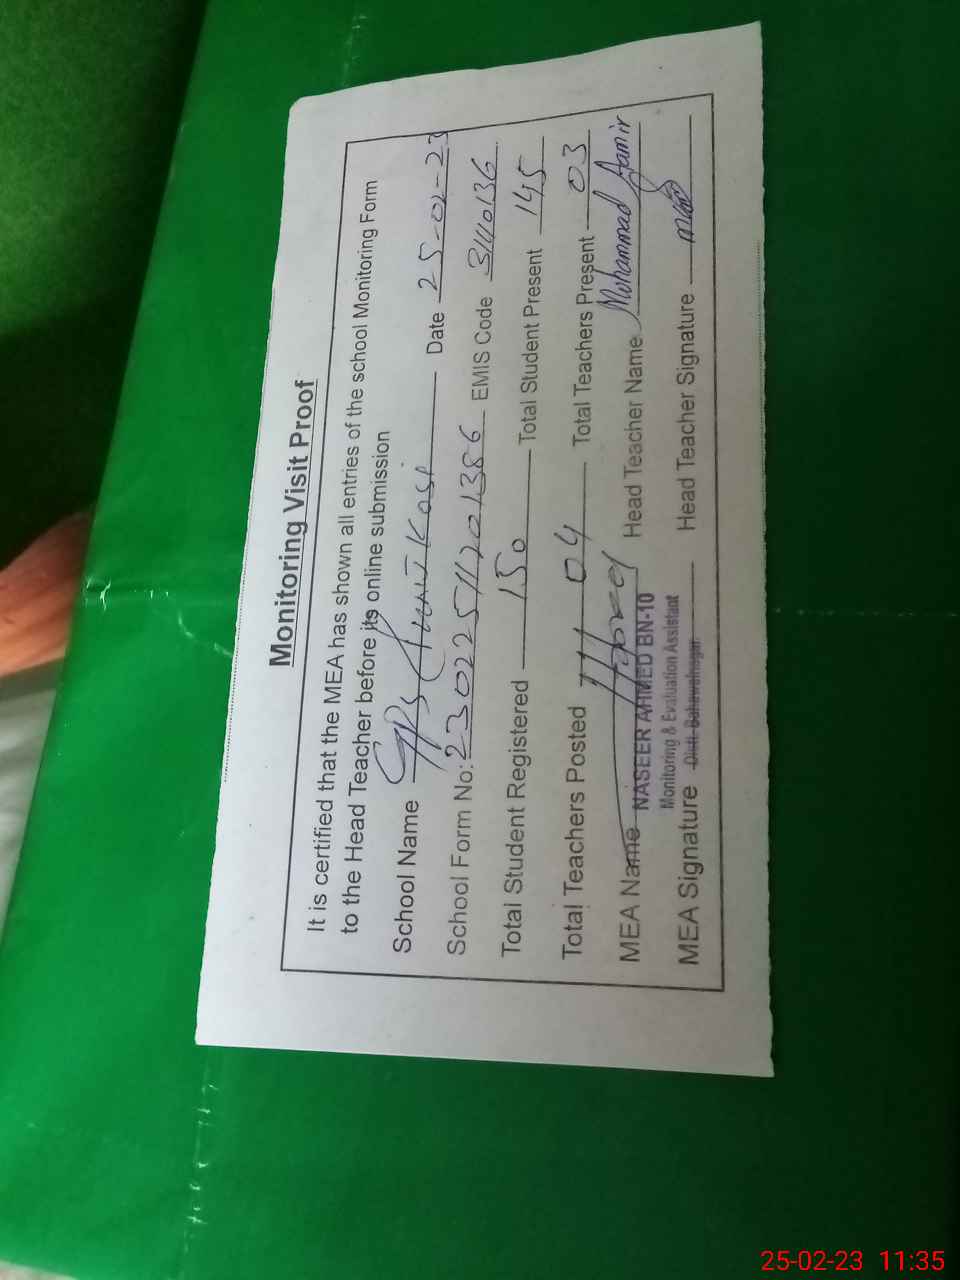 Monitoring Visit Proof
It is certified that the MEA has shown all entries of the school Monitoring Form
to the Head Teacher before its online submission
School Name GPS Kosi Date 25-02-23
School Form No: 230225111201386 EMIS Code 31110136
Total Student Registered 150 Total Student Present 145
Total Teachers Posted 04 Total Teachers Present 03
MEA Name NASEER AHMED BN-10 Head Teacher Name Mohammad Aamir
Monitoring & Evaluation Assistant
Distt. Bahawalnagar
MEA Signature Head Teacher Signature
25-02-23 11:35